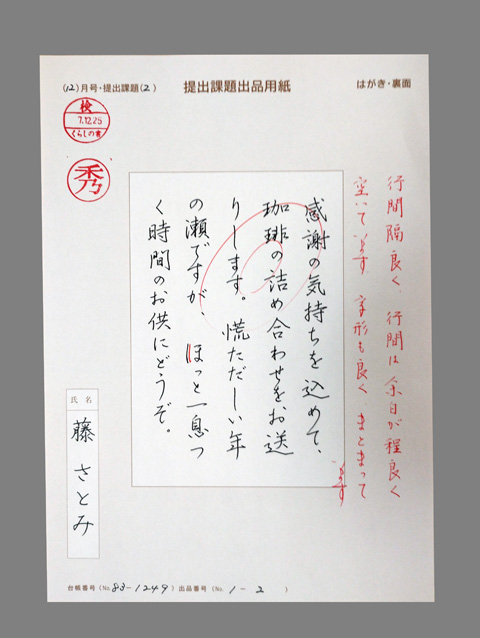 (12)月号・提出課題(2)
提出課題出品用紙
はがき・裏面
検
7.12.25
くらしの書
秀
行間隔良く、行間は余白が程良く
空いています。字形も良く、まとまって
います
感謝の気持ちを込めて、
珈琲の詰め合わせをお送
りします。慌ただしい年
の瀬ですが、ほっと一息つ
く時間のお供にどうぞ。
氏名
藤さとみ
台帳番号(No.83-1249)出品番号(No.1-2)